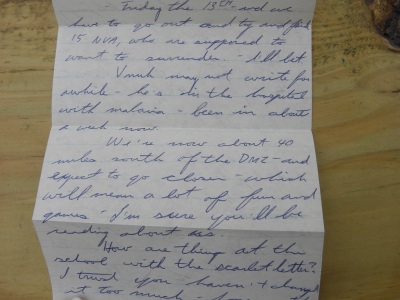 - Friday the 13TH - and we
have to go out and try and find
15 NVA, who are supposed to
want to surrender. - I'll bet
Vnuk may not write for
awhile - he's in the hospital
with malaria - been in about
a week now.
We're now about 40
miles south of the DMZ - and
expect to go closer - which
will mean a lot of fun and
games. I'm sure you'll be
reading about us.
How are things at the
school with the scarlet letter?
I trust you haven't changed
it too much -